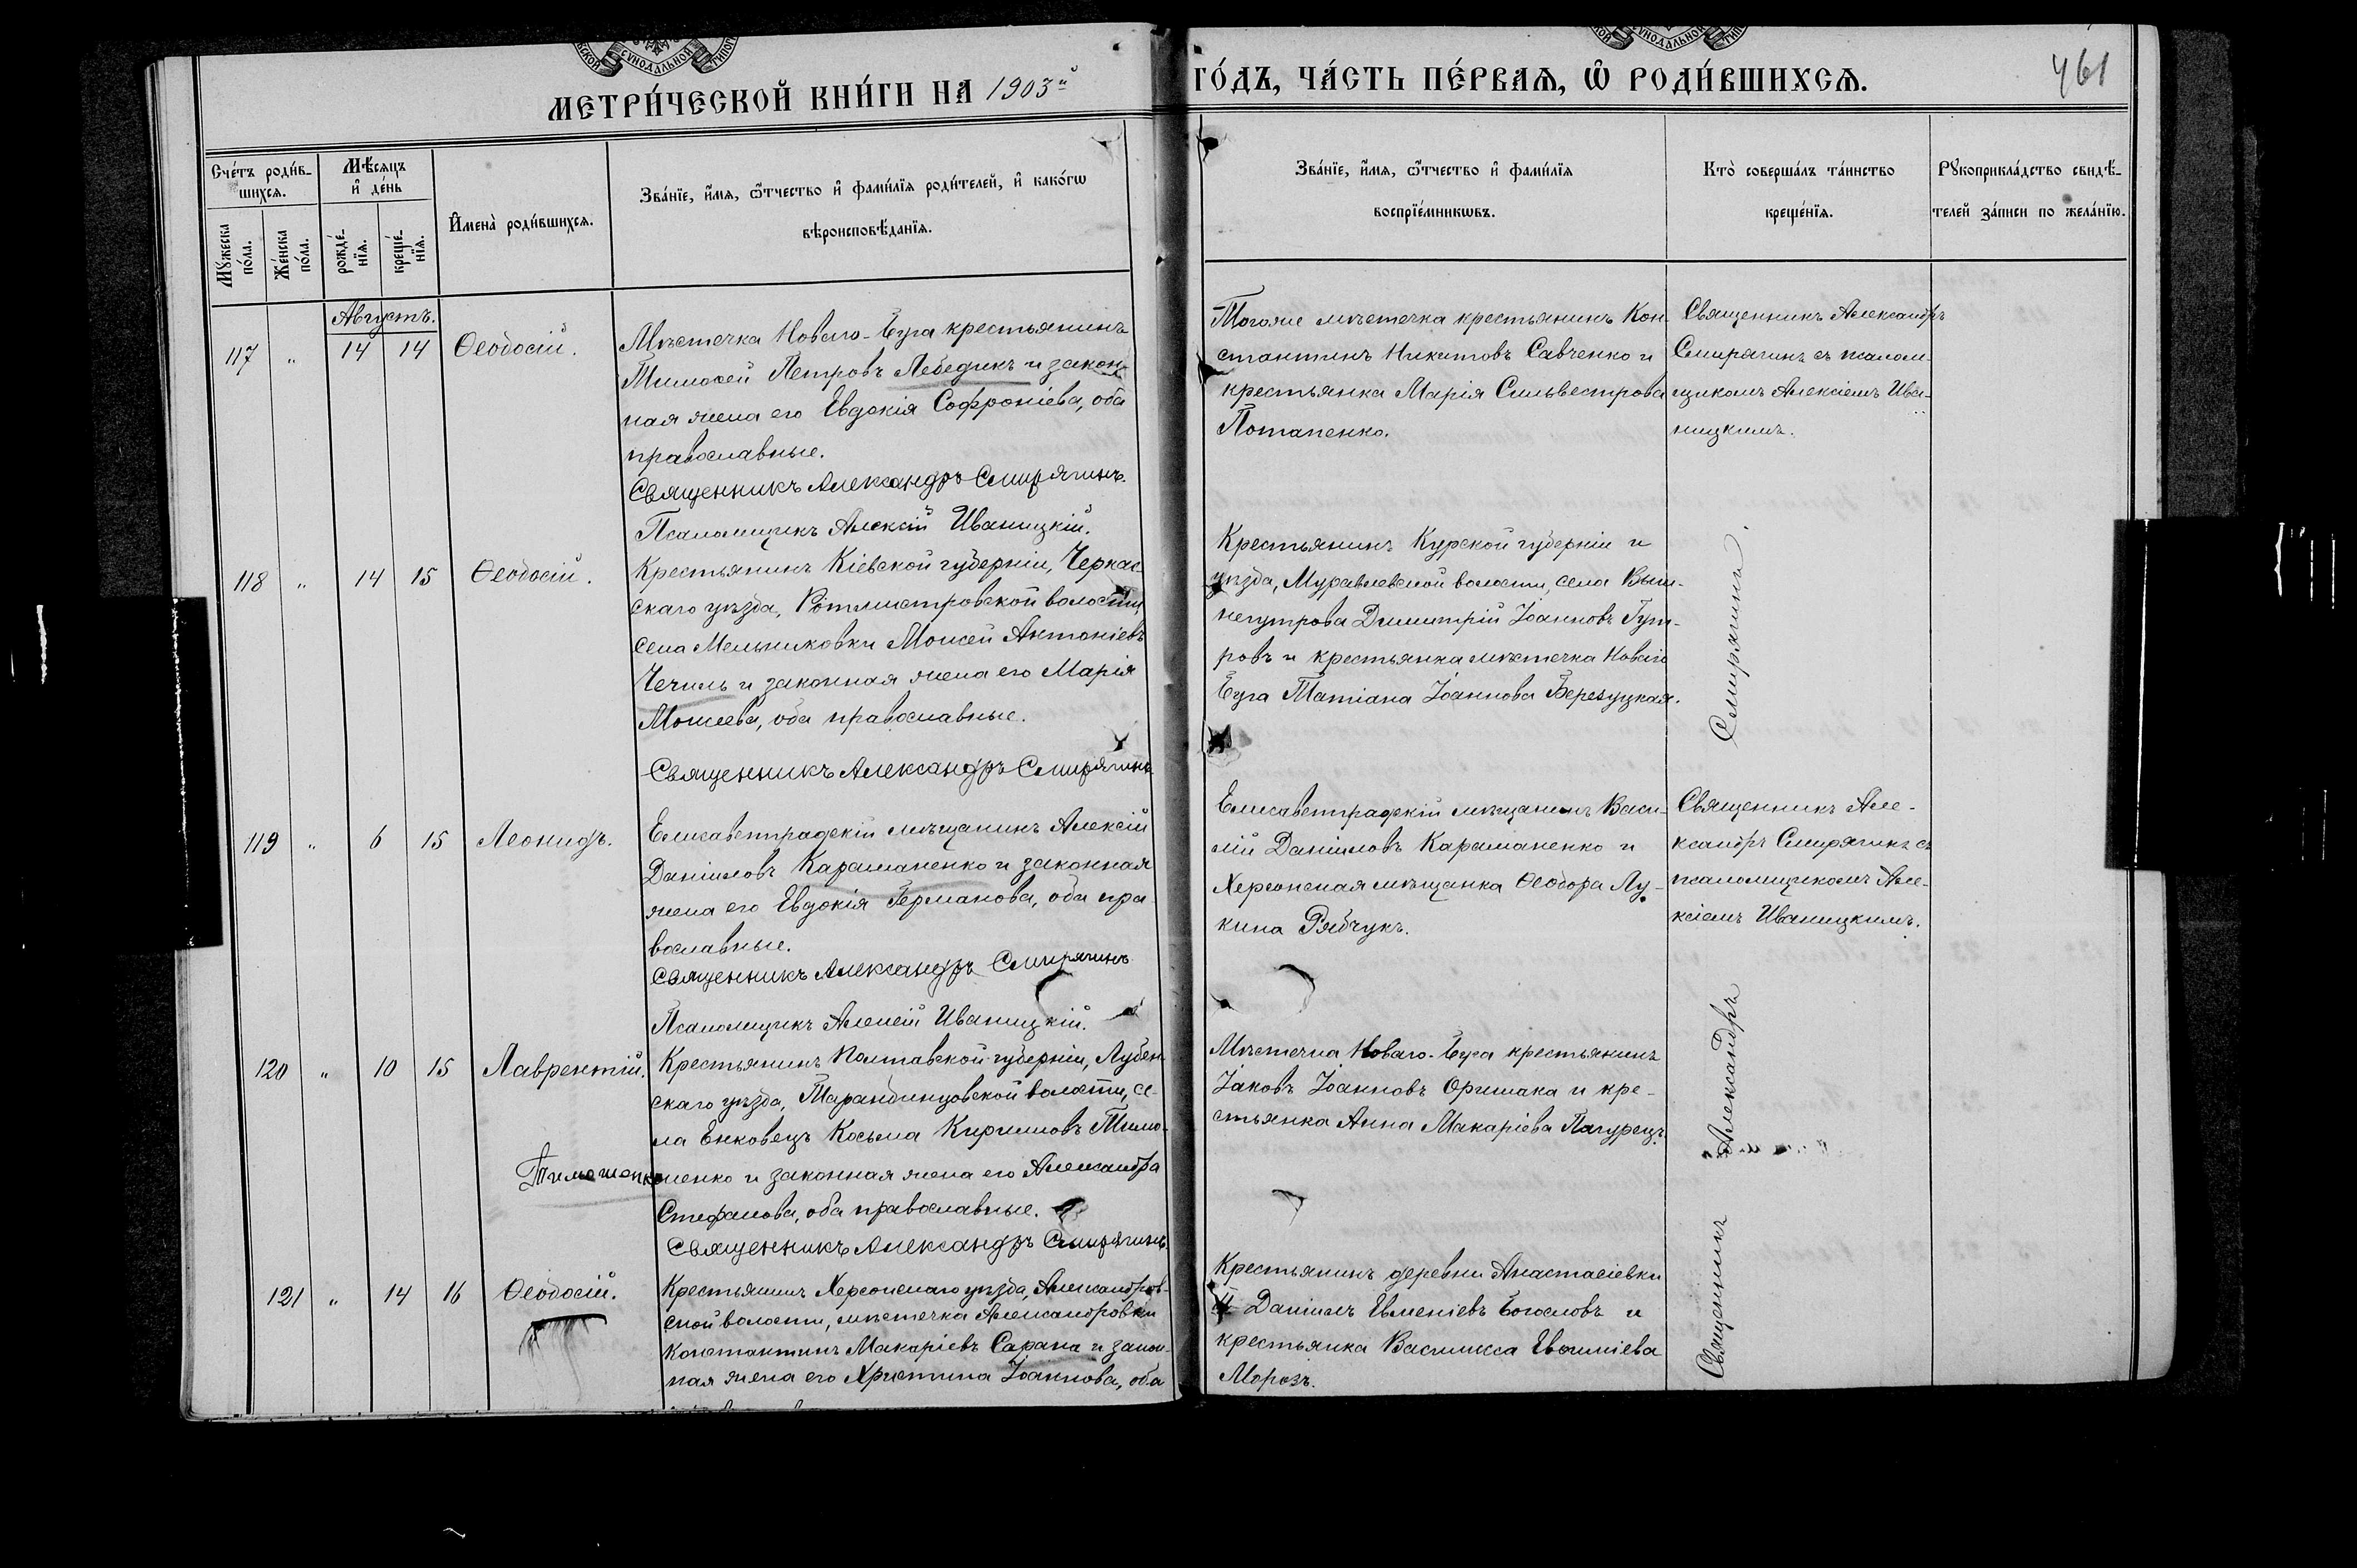 СѴНОДАЛЬНОЙ
СѴНОДАЛЬНОЙ
МЕТРИ́ЧЕСКОЙ КНИ́ГИ НА 1903й
ГО́ДЪ, ЧА́СТЬ ПЕ́РВАѦ, Ѡ҆ РОДИ́ВШИХСѦ.
461
Сче́тъ роди́в-
шихсѧ.
Мѣ́сѧцъ
и҆ де́нь
Мꙋ́жеска
по́ла.
Же́нска
по́ла.
рожде́-
нїѧ.
креще́-
нїѧ.
И҆мена̀ роди́вшихсѧ.
Зва́нїе, и҆́мѧ, ѻ҆́тчество и҆ фами́лїѧ роди́телей, и҆ како́гѡ
вѣроисповѣ́данїѧ.
Зва́нїе, и҆́мѧ, ѻ҆́тчество и҆ фами́лїѧ
воспрїе́мникѡвъ.
Кто̀ соверша́лъ та́инство
креще́нїѧ.
Рꙋкоприкла́дство свидѣ́-
телей за́писи по жела́нїю.
Августъ.
117 " 14 14 Ѳеодосій.
Мѣстечка Новаго-Буга крестьянинъ
Тимоѳей Петровъ Лебедикъ и закон-
ная жена его Евдокія Софроніева, оба
православные.
Священникъ Александръ Смирягинъ.
Псаломщикъ Алексій Иваницкій.
Тогоже мѣстечка крестьянинъ Кон-
стантинъ Никитовъ Савченко и
крестьянка Марія Сильвестрова
Потапенко.
Священникъ Александръ
Смирягинъ съ псалом-
щикомъ Алексіемъ Ива-
ницкимъ.
118 " 14 15 Ѳеодосій.
Крестьянинъ Кіевской губерніи, Черкас-
скаго уѣзда, Ротмистровской волости,
села Мельниковки Моисей Антоніевъ
Чечиль и законная жена его Марія
Моисеева, оба православные.
Священникъ Александръ Смирягинъ
Крестьянинъ Курской губерніи и
уѣзда, Муравлевской волости, села Выш-
негутрова Димитрій Іоанновъ Гут-
ровъ и крестьянка мѣстечка Новаго
Буга Татіана Іоаннова Березуцкая.
119 " 6 15 Леонидъ.
Елисаветградскій мѣщанинъ Алексій
Даніиловъ Караманенко и законная
жена его Евдокія Германова, оба пра-
вославные.
Священникъ Александръ Смирягинъ
Псаломщикъ Алексій Иваницкій.
Елисаветградскій мѣщанинъ Васи-
лій Даніиловъ Караманенко и
Херсонская мѣщанка Ѳеодора Лу-
кина Рябчукъ.
Священникъ Але-
ксандръ Смирягинъ съ
псаломщикомъ Але-
ксіемъ Иваницкимъ.
120 " 10 15 Лаврентій.
Крестьянинъ Полтавской губерніи, Лубен-
скаго уѣзда, Тарандинцовской волости, се-
ла Енковецъ Косьма Кирилловъ Тимо-
Тимошенко
шенко и законная жена его Александра
Стефанова, оба православные.
Священникъ Александръ Смирягинъ.
Мѣстечка Новаго-Буга крестьянинъ
Іаковъ Іоанновъ Оришака и кре-
стьянка Анна Макаріева Пагурецъ.
121 " 14 16 Ѳеодосій.
Крестьянинъ Херсонскаго уѣзда, Александров-
ской волости, мѣстечка Александровки
Константинъ Макаріевъ Сарана и закон-
ная жена его Христина Іоаннова, оба
Крестьянинъ деревни Анастасіевки
Даніилъ Евменіевъ Богословъ и
крестьянка Василисса Евѳиміева
Морозъ.
Священникъ Александръ Смирягинъ